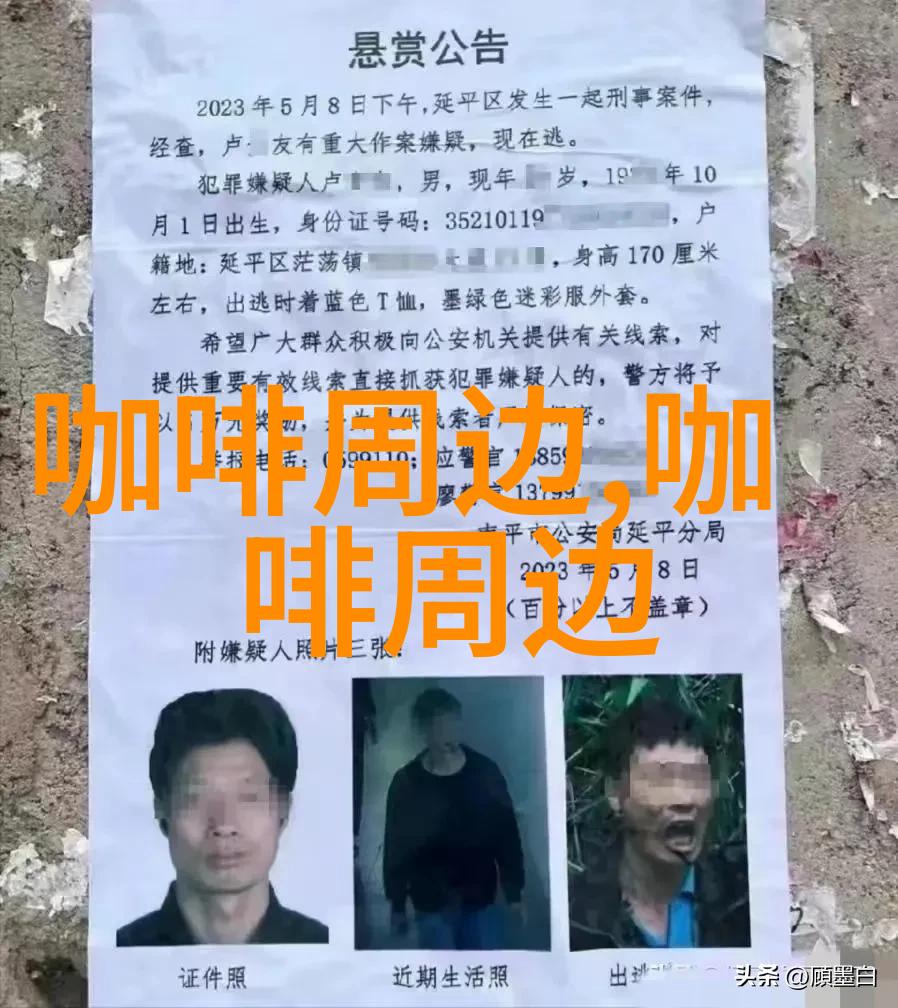 悬赏公告
2023年5月8日下午,延平区发生一起刑事案件,
经查，卢 友有重大作案嫌疑，现在逃。
犯罪嫌疑人卢 ，男，现年 岁，19 年10
月1日出生，身份证号码：35210119 ，户
籍地：延平区茫荡镇 ，身高170厘米
左右，出逃时着蓝色T恤，墨绿色迷彩服外套。
希望广大群众积极向公安机关提供有关线索，对
提供重要有效线索直接抓获犯罪嫌疑人的，警方将予
以
咖啡周边,咖
啡周边
举报电话：0599110；应警官
廖警官 13799
南平市公安局延平分局
2023年5月8日
（百份以上不盖章）
附嫌疑人照片三张：
证件照
近期生活照
出逃
头条 @顾墨白